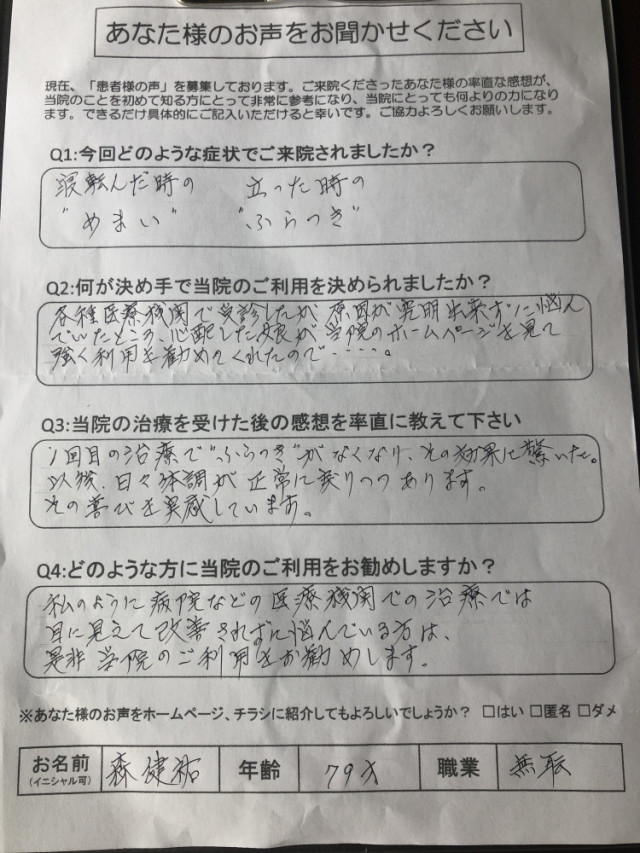 あなた様のお声をお聞かせください
現在、「患者様の声」を募集しております。ご来院くださったあなた様の率直な感想が、
当院のことを初めて知る方にとって非常に参考になり、当院にとっても何よりの力になり
ます。できるだけ具体的にご記入いただけると幸いです。ご協力よろしくお願いします。
Q1:今回どのような症状でご来院されましたか？
寝転んだ時の 立った時の
"めまい" "ふらつき"
Q2:何が決め手で当院のご利用を決められましたか？
各種医療機関で受診したが 原因が究明出来ずに悩ん
でいたところ、心配した娘が当院のホームページを見て
強く利用を勧めてくれたので・・・・。
Q3:当院の治療を受けた後の感想を率直に教えて下さい
1回目の治療で"ふらつき"がなくなり、その効果に驚いた。
以後、日々体調が正常に戻りつつあります。
その喜びを実感しています。
Q4:どのような方に当院のご利用をお勧めしますか？
私のように病院などの医療機関での治療では
目に見えて改善されずに悩んでいる方は、
是非当院のご利用をお勧めします。
※あなた様のお声をホームページ、チラシに紹介してもよろしいでしょうか？ □はい □匿名 □ダメ
お名前 森健祐 年齢 79才 職業 無職
(イニシャル可)